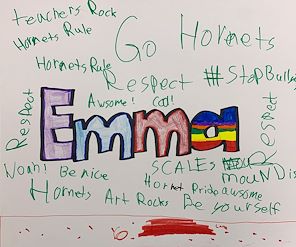 teachers Rock
Hornets Rule
Go Hornets
Hornets Rule
Respect
#StopBull
Awsome!
Cool!
Respect
Emma
Respect
Noah!
Be nice
SCALES
mounDs
Hornet Pride
awsome
Hornets
Art Rocks
Be yourself